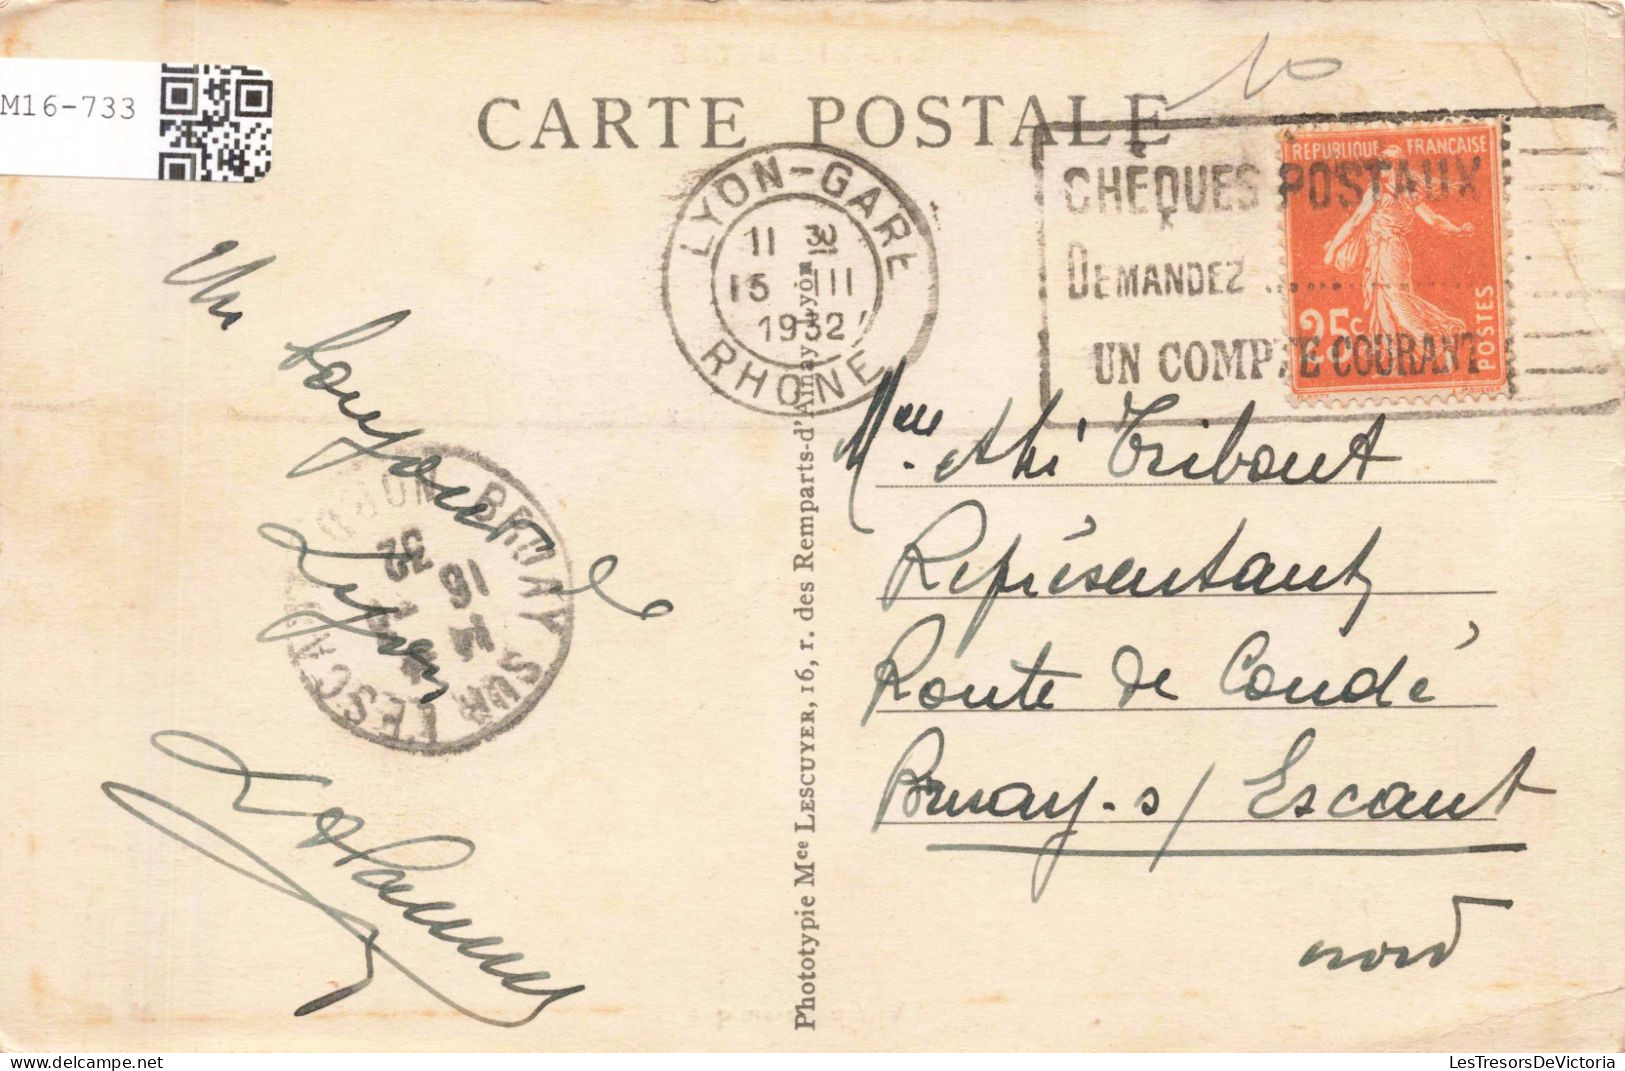 M16-733
CARTE POSTALE
LYON-GARE
11 30
15 III
1932
RHÔNE
CHÈQUES POSTAUX
DEMANDEZ
UN COMPTE COURANT
REPUBLIQUE FRANÇAISE
25c
POSTES
Un
bonjour de
Lyon
BRUAY SUR L'ESCAUT
16
32
Phototypie Mce LESCUYER, 16, r. des Remparts-d'Ainay, Lyon
Mme Tribout
Représentant
Route de Condé
Bruay-s/Escaut
nord
LesTresorsDeVictoria